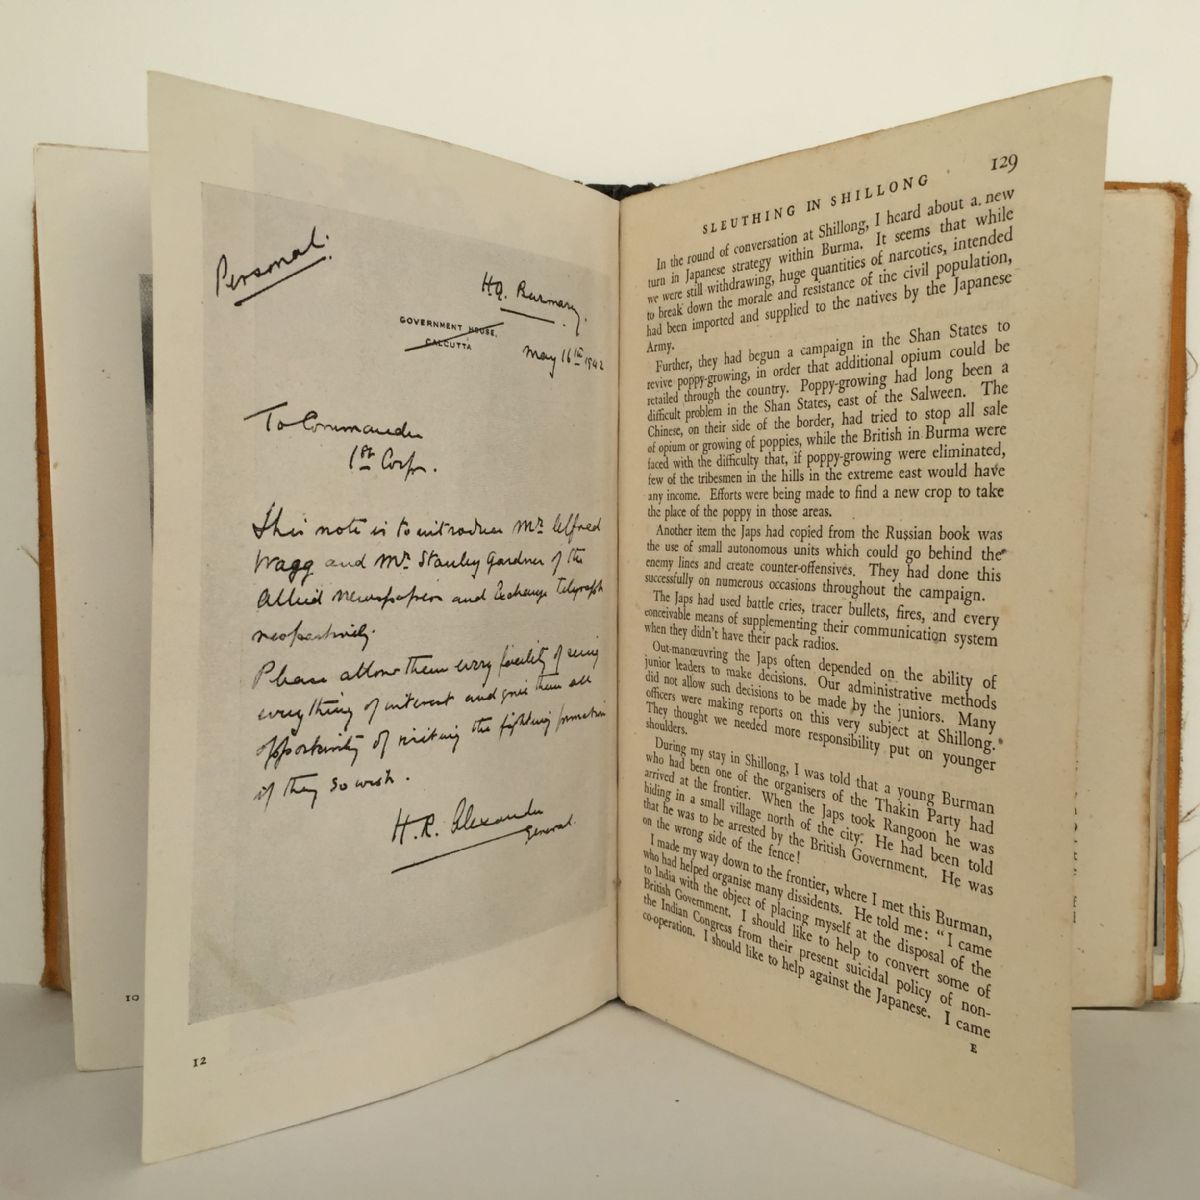 Personal.
HQ. Burmarmy.
GOVERNMENT HOUSE,
CALCUTTA
May 16th 1942
To Commander
1st Corps.
This note is to introduce Mr. Alfred
Wagg and Mr. Stanley Gardner of the
Allied newspapers and Exchange Telegraph
respectively.
Please allow them every facility of seeing
everything of interest and give them all
opportunity of visiting the fighting formations
if they so wish.
H. R. Alexander
General.
12
10
129
SLEUTHING IN SHILLONG
In the round of conversation at Shillong, I heard about a new
turn in Japanese strategy within Burma. It seems that while
we were still withdrawing, huge quantities of narcotics, intended
to break down the morale and resistance of the civil population,
had been imported and supplied to the natives by the Japanese
Army.
Further, they had begun a campaign in the Shan States to
revive poppy-growing, in order that additional opium could be
retailed through the country. Poppy-growing had long been a
difficult problem in the Shan States, east of the Salween. The
Chinese, on their side of the border, had tried to stop all sale
of opium or growing of poppies, while the British in Burma were
faced with the difficulty that, if poppy-growing were eliminated,
few of the tribesmen in the hills in the extreme east would have
any income. Efforts were being made to find a new crop to take
the place of the poppy in those areas.
Another item the Japs had copied from the Russian book was
the use of small autonomous units which could go behind the
enemy lines and create counter-offensives. They had done this
successfully on numerous occasions throughout the campaign.
The Japs had used battle cries, tracer bullets, fires, and every
conceivable means of supplementing their communication system
when they didn't have their pack radios.
Out-manœuvring the Japs often depended on the ability of
junior leaders to make decisions. Our administrative methods
did not allow such decisions to be made by the juniors. Many
officers were making reports on this very subject at Shillong.
They thought we needed more responsibility put on younger
shoulders.
During my stay in Shillong, I was told that a young Burman
who had been one of the organisers of the Thakin Party had
arrived at the frontier. When the Japs took Rangoon he was
hiding in a small village north of the city. He had been told
that he was to be arrested by the British Government. He was
on the wrong side of the fence!
I made my way down to the frontier, where I met this Burman,
who had helped organise many dissidents. He told me: "I came
to India with the object of placing myself at the disposal of the
British Government. I should like to help to convert some of
the Indian Congress from their present suicidal policy of non-
co-operation. I should like to help against the Japanese. I came
E